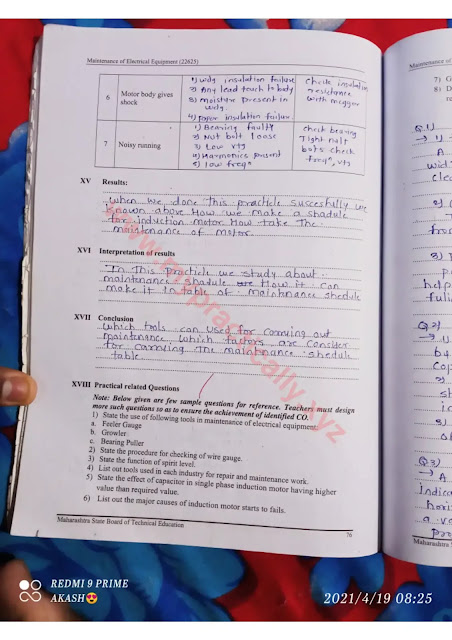 Maintenance of Electrical Equipment (22625)
6 Motor body gives shock
1) wdg insulation failure
2) Any lead touch to body
3) moister present in wdg.
4) paper insulation failure.
Check insulation resistance with megger
7 Noisy running
1) Bearing faulty
2) Nut bolt loose
3) Low vtg
4) Harmonics present
5) low freqn
check bearing
Tight nuts
bolts check
freqn, vtg
XV Results:
when we done This practicle succesfully we
known above How we make a shadule
for induction motor How take The
maintenance of motor.
XVI Interpretation of results
In This practicle we study about
maintenance shadule How it can
make it in table of maintnance shedule
XVII Conclusion
which tools can used for carrying out
maintenance which factors are consider
for carrying The maintnance shedule
table.
XVIII Practical related Questions
Note: Below given are few sample questions for reference. Teachers must design
more such questions so as to ensure the achievement of identified CO.
1) State the use of following tools in maintenance of electrical equipment
a. Feeler Gauge
b. Growler
c. Bearing Puller
2) State the procedure for checking of wire gauge.
3) State the function of spirit level.
4) List out tools used in each industry for repair and maintenance work.
5) State the effect of capacitor in single phase induction motor having higher
value than required value.
6) List out the major causes of induction motor starts to fails.
Maharashtra State Board of Technical Education
76
www.mypractically.xyz
Maintenance of
7) G
8) D
Q.1)
Q2)
Q3)
Maharashtra
REDMI 9 PRIME
AKASH😍
2021/4/19 08:25